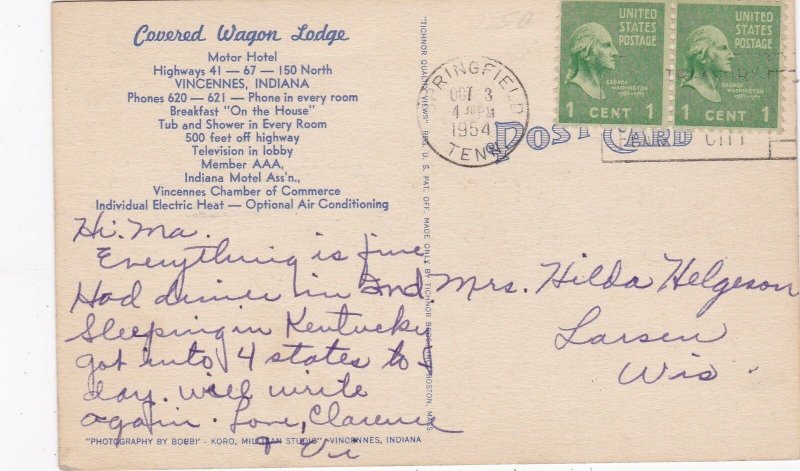 Covered Wagon Lodge
Motor Hotel
Highways 41 — 67 — 150 North
VINCENNES, INDIANA
Phones 620 — 621 — Phone in every room
Breakfast "On the House"
Tub and Shower in Every Room
500 feet off highway
Television in lobby
Member AAA,
Indiana Motel Ass'n.,
Vincennes Chamber of Commerce
Individual Electric Heat — Optional Air Conditioning
Hi. Ma.
Everything is fine
Had dinner in Ind.
Sleeping in Kentucky
got into 4 states to
day. will write
again. Love, Clarence
& Vi
"PHOTOGRAPHY BY BOBBI' - KORO, STUDIO" VINCENNES, INDIANA
"TICHNOR QUALITY VIEWS" REG. U. S. PAT. OFF. MADE ONLY BY TICHNOR BROS. BOSTON, MASS.
SPRINGFIELD
OCT 3
4 PM
1954
TENN.
UNITED
STATES
POSTAGE
GEORGE
WASHINGTON
1789-1797
1 CENT 1
UNITED
STATES
POSTAGE
GEORGE
WASHINGTON
1789-1797
1 CENT 1
POST CARD
CITY
Mrs. Hilda Helgeson
Larsen
Wis.